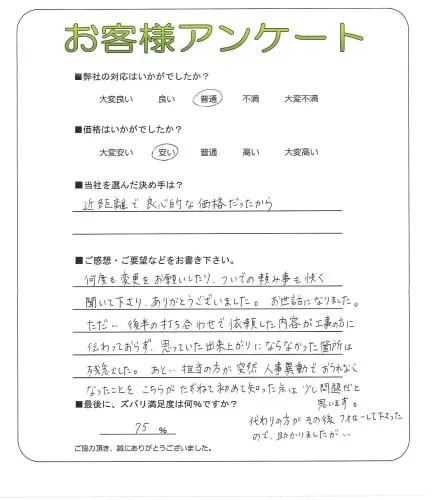 お客様アンケート
■弊社の対応はいかがでしたか?
大変良い 良い 普通 不満 大変不満
■価格はいかがでしたか?
大変安い 安い 普通 高い 大変高い
■当社を選んだ決め手は?
近距離で良心的な価格だったから
■ご感想・ご要望などをお書き下さい。
何度も変更をお願いしたり、ついでの頼み事も快く
聞いて下さり、ありがとうございました。お世話になりました。
ただ… 後半の打ち合わせで依頼した内容が工事の方に
伝わっておらず、思っていた出来上がりにならなかった箇所は
残念でした。あと… 担当の方が突然 人事異動でおられなく
なったことを こちらがたずねて初めて知った点は少し問題だと
思います。
■最後に、ズバリ満足度は何%ですか?
75 %
代わりの方が その後 フォローして下さった
ので、助かりましたが…
ご協力頂き、誠にありがとうございました。